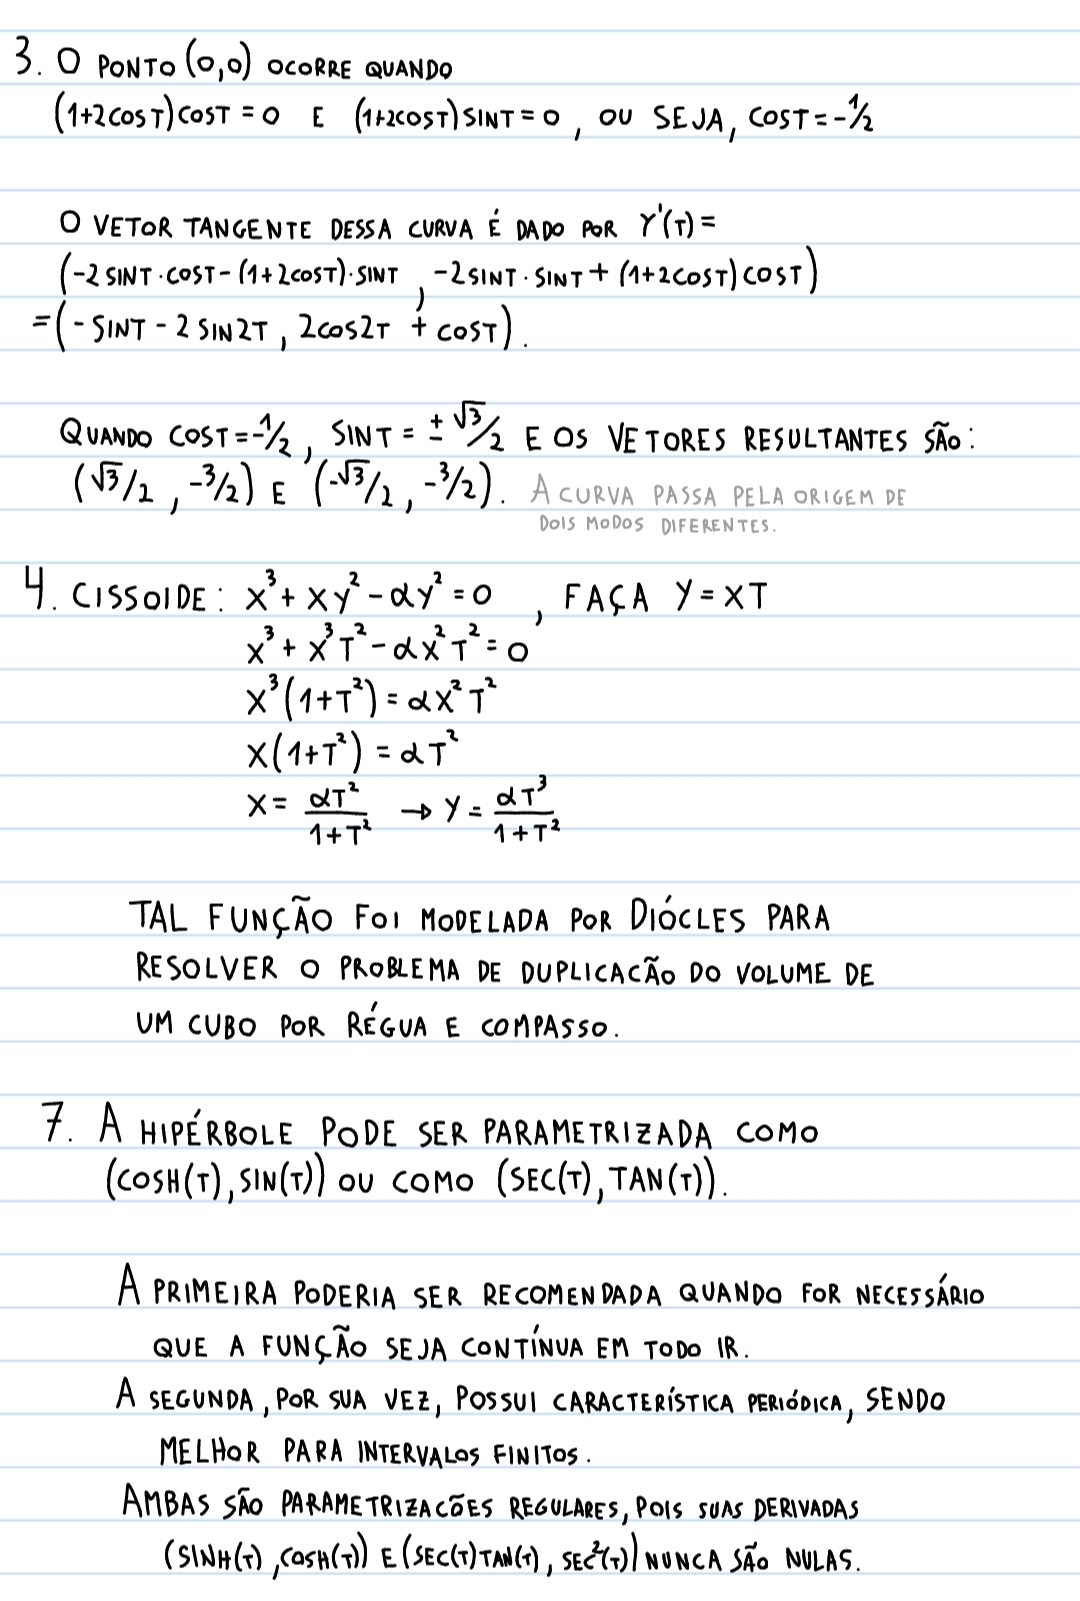 3. O PONTO (0,0) OCORRE QUANDO
(1+2COST)COST = 0 E (1+2COST)SINT = 0, OU SEJA, COST = -1/2
O VETOR TANGENTE DESSA CURVA É DADO POR γ'(T) =
(-2SINT·COST-(1+2COST)·SINT, -2SINT·SINT+(1+2COST)COST)
=(-SINT-2SIN2T, 2COS2T+COST).
QUANDO COST=-1/2, SINT = ±√3/2 E OS VETORES RESULTANTES SÃO:
(√3/2, -3/2) E (-√3/2, -3/2). A CURVA PASSA PELA ORIGEM DE
DOIS MODOS DIFERENTES.
4. CISSOIDE: X³+XY²-αY²=0, FAÇA Y=XT
X³+X³T²-αX²T²=0
X³(1+T²)=αX²T²
X(1+T²)=αT²
X= αT²/1+T² → Y= αT³/1+T²
TAL FUNÇÃO FOI MODELADA POR DIÓCLES PARA
RESOLVER O PROBLEMA DE DUPLICACÃO DO VOLUME DE
UM CUBO POR RÉGUA E COMPASSO.
7. A HIPÉRBOLE PODE SER PARAMETRIZADA COMO
(COSH(T), SIN(T)) OU COMO (SEC(T), TAN(T)).
A PRIMEIRA PODERIA SER RECOMENDADA QUANDO FOR NECESSÁRIO
QUE A FUNÇÃO SEJA CONTÍNUA EM TODO IR.
A SEGUNDA, POR SUA VEZ, POSSUI CARACTERÍSTICA PERIÓDICA, SENDO
MELHOR PARA INTERVALOS FINITOS.
AMBAS SÃO PARAMETRIZACÕES REGULARES, POIS SUAS DERIVADAS
(SINH(T), COSH(T)) E (SEC(T)TAN(T), SEC²(T)) NUNCA SÃO NULAS.